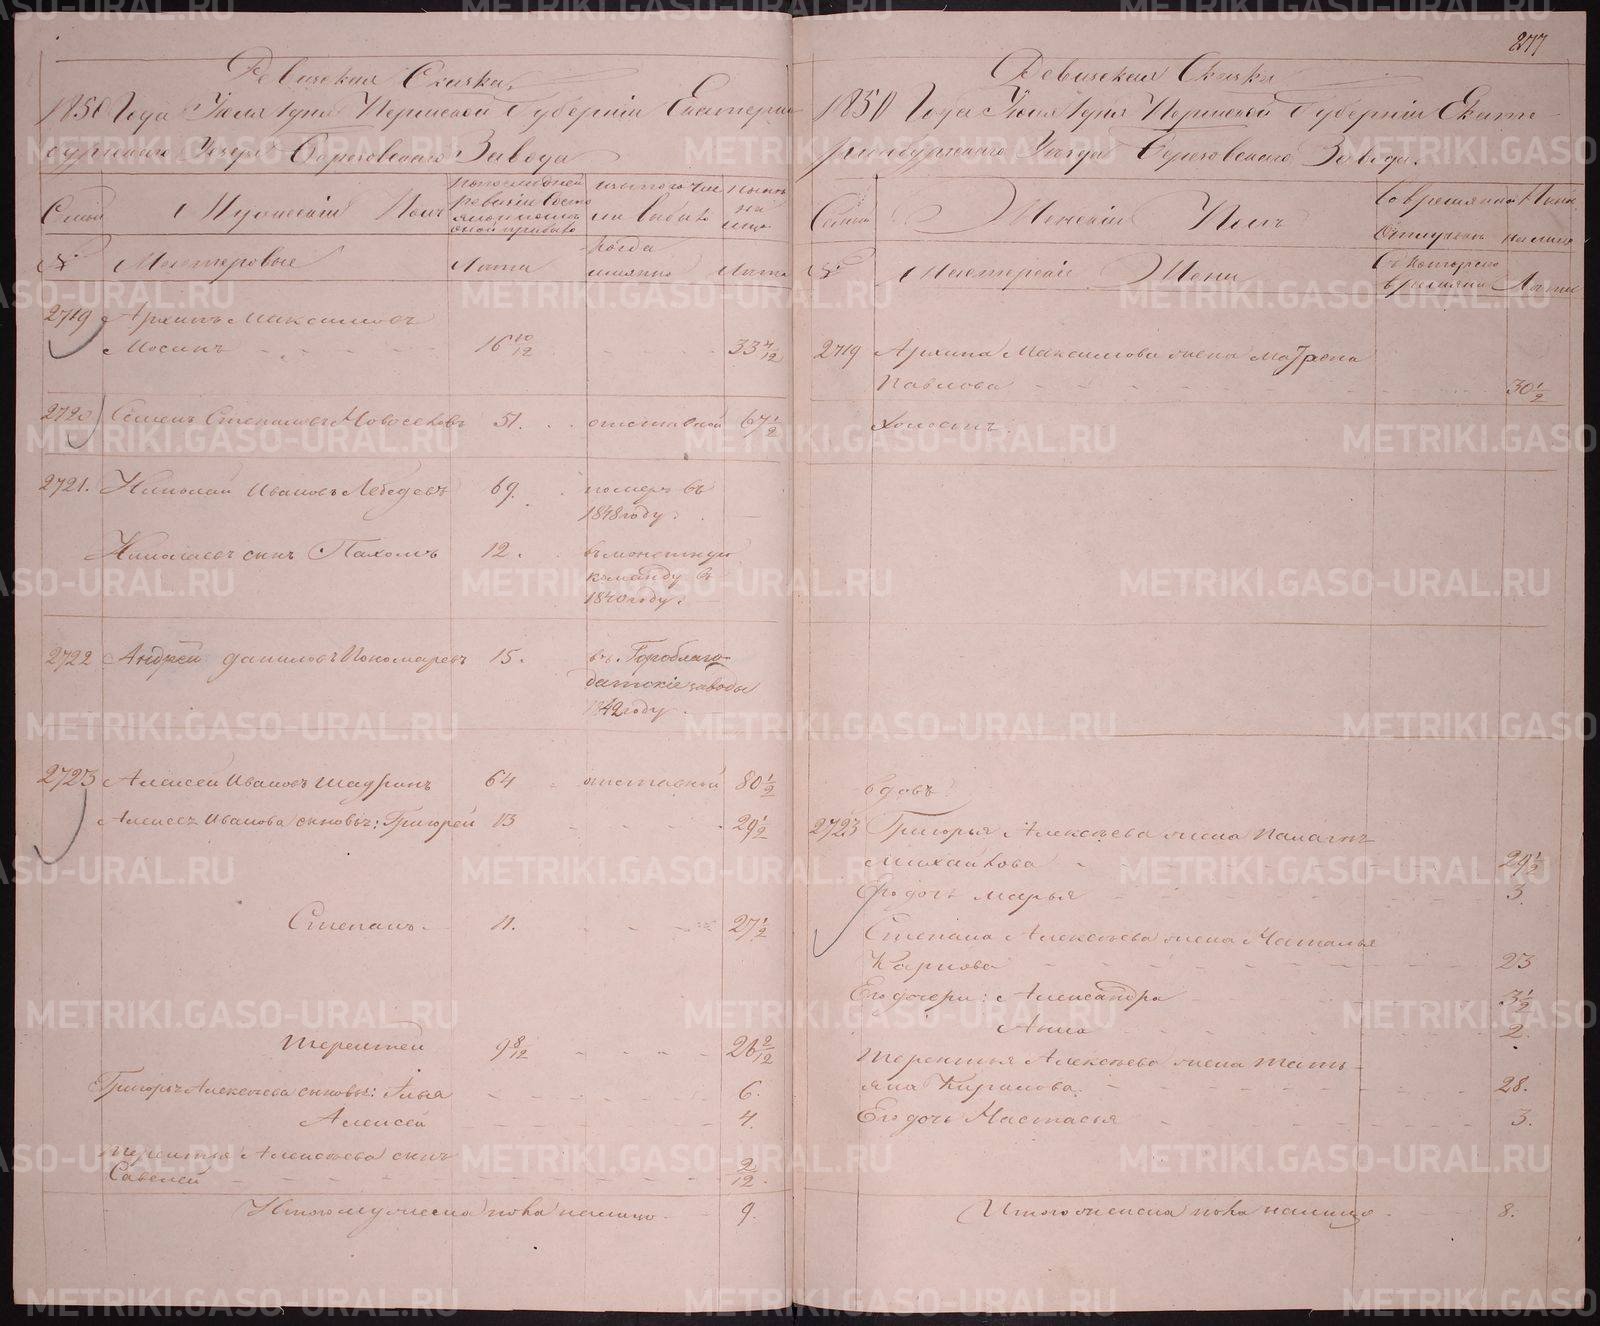 277
Ревизская Сказка
1850 Года Июля 1 дня Пермской Губернии Екатерин
бургскаго Уезда Березовскаго Завода
Семьи
Мужескій Полъ
По последней
ревизіи состо
яло и после
оной прибыло
изъ того чи
сла выбыло
ныне
на
лицо
№
Мастеровые
Лета
Когда
имянно
Лета
2719 Архипъ Максимовъ
Мосинъ 16 10/12 33 4/12
2720 Семенъ Степановъ Новоселовъ 51. отставной 67 1/2
2721. Николай Ивановъ Лебедевъ 69. померъ въ
1848 году.
Николаевъ сынъ Пахомъ 12. въ монетную
команду въ
1840 году.
2722 Андрей Даниловъ Пономаревъ 15. въ Гороблаго
датскіе заводы
1842 году.
2723 Алексей Ивановъ Шадринъ 64 отставной 80 1/2
Алексея Иванова сыновья: Григорей 13 29 1/2
Степанъ 11. 27 1/2
Терентей 9 8/12 26 2/12
Григорья Алексеева сыновья: Илья 6.
Алексей 4.
Терентья Алексеева сынъ
Савелей 2/12.
Итого мужеска пола на лицо 9.
Ревизская Сказка
1850 Года Июля 1 дня Пермской Губернии Екате
ринбургскаго Уезда Березовскаго Завода.
Семьи
Женскій Полъ
Во временной
отлучке
Ныне
на лицо
№
Мастерскіе Жены
Съ котораго
времяни
Лета
2719 Архипа Максимова жена Матрена
Павлова 30 1/2
Холостъ.
вдовъ
2723 Григорья Алексеева жена Палагея
Михайлова 29 1/2
Его дочь Марья 3.
Степана Алексеева жена Наталья
Карпова 23
Его дочери: Александра 3 1/2
Анна 2.
Терентья Алексеева жена Тать
яна Кирилова. 28.
Его дочь Настасья 3.
Итого женска пола на лицо 8.
METRIKI.GASO-URAL.RU